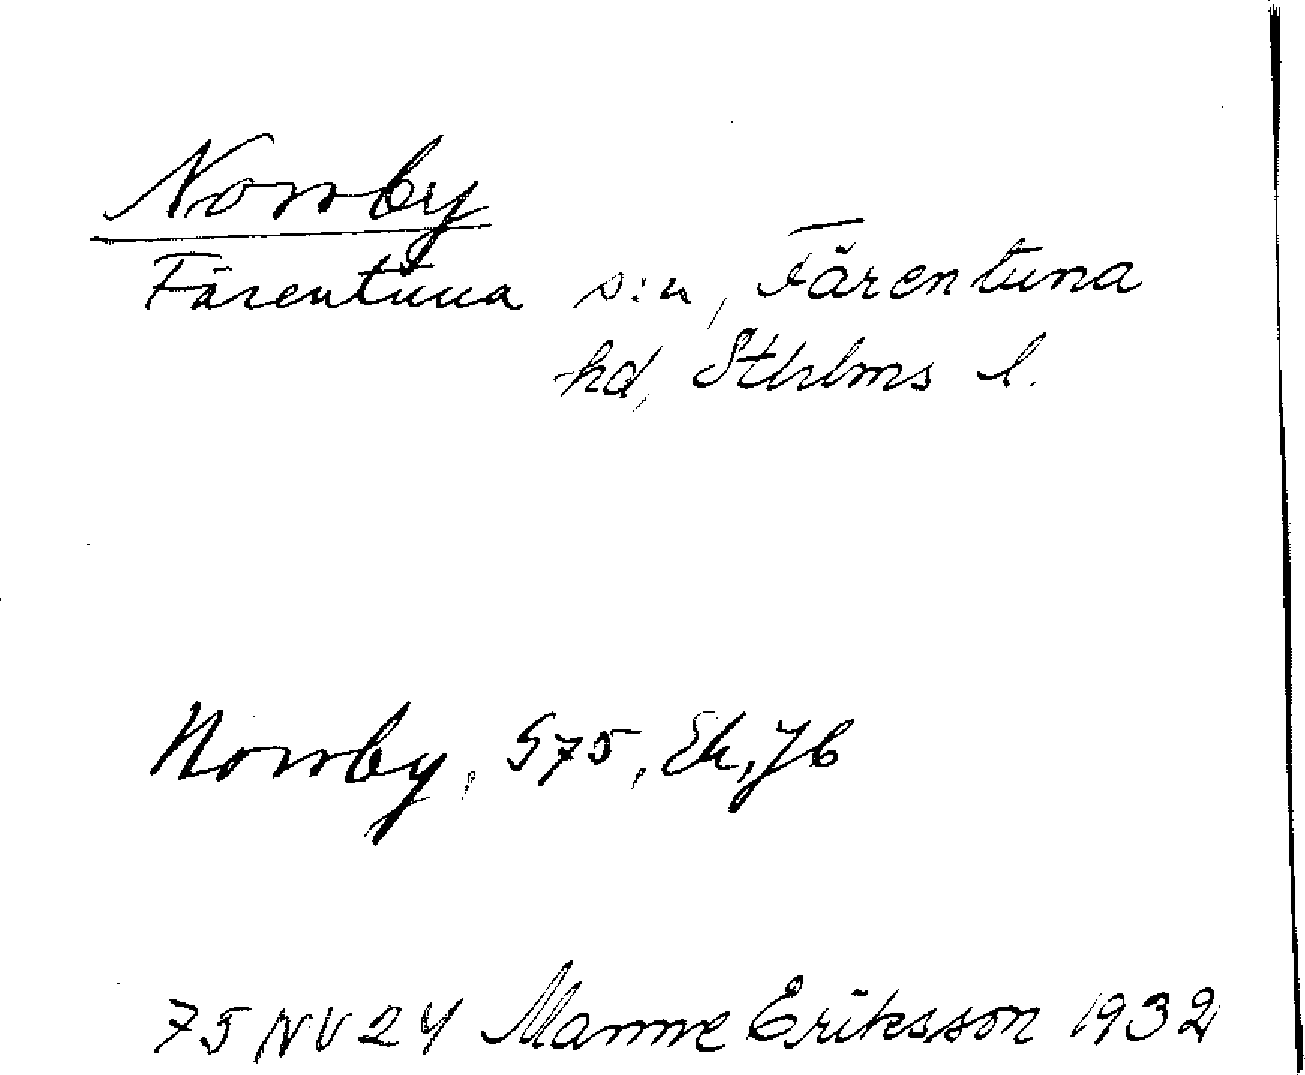 Norrby
Färentuna s:n, Färentuna
hd, Sthlms l.
Norrby, 575, Ek, Jb
75 NV 24 Manne Eriksson 1932